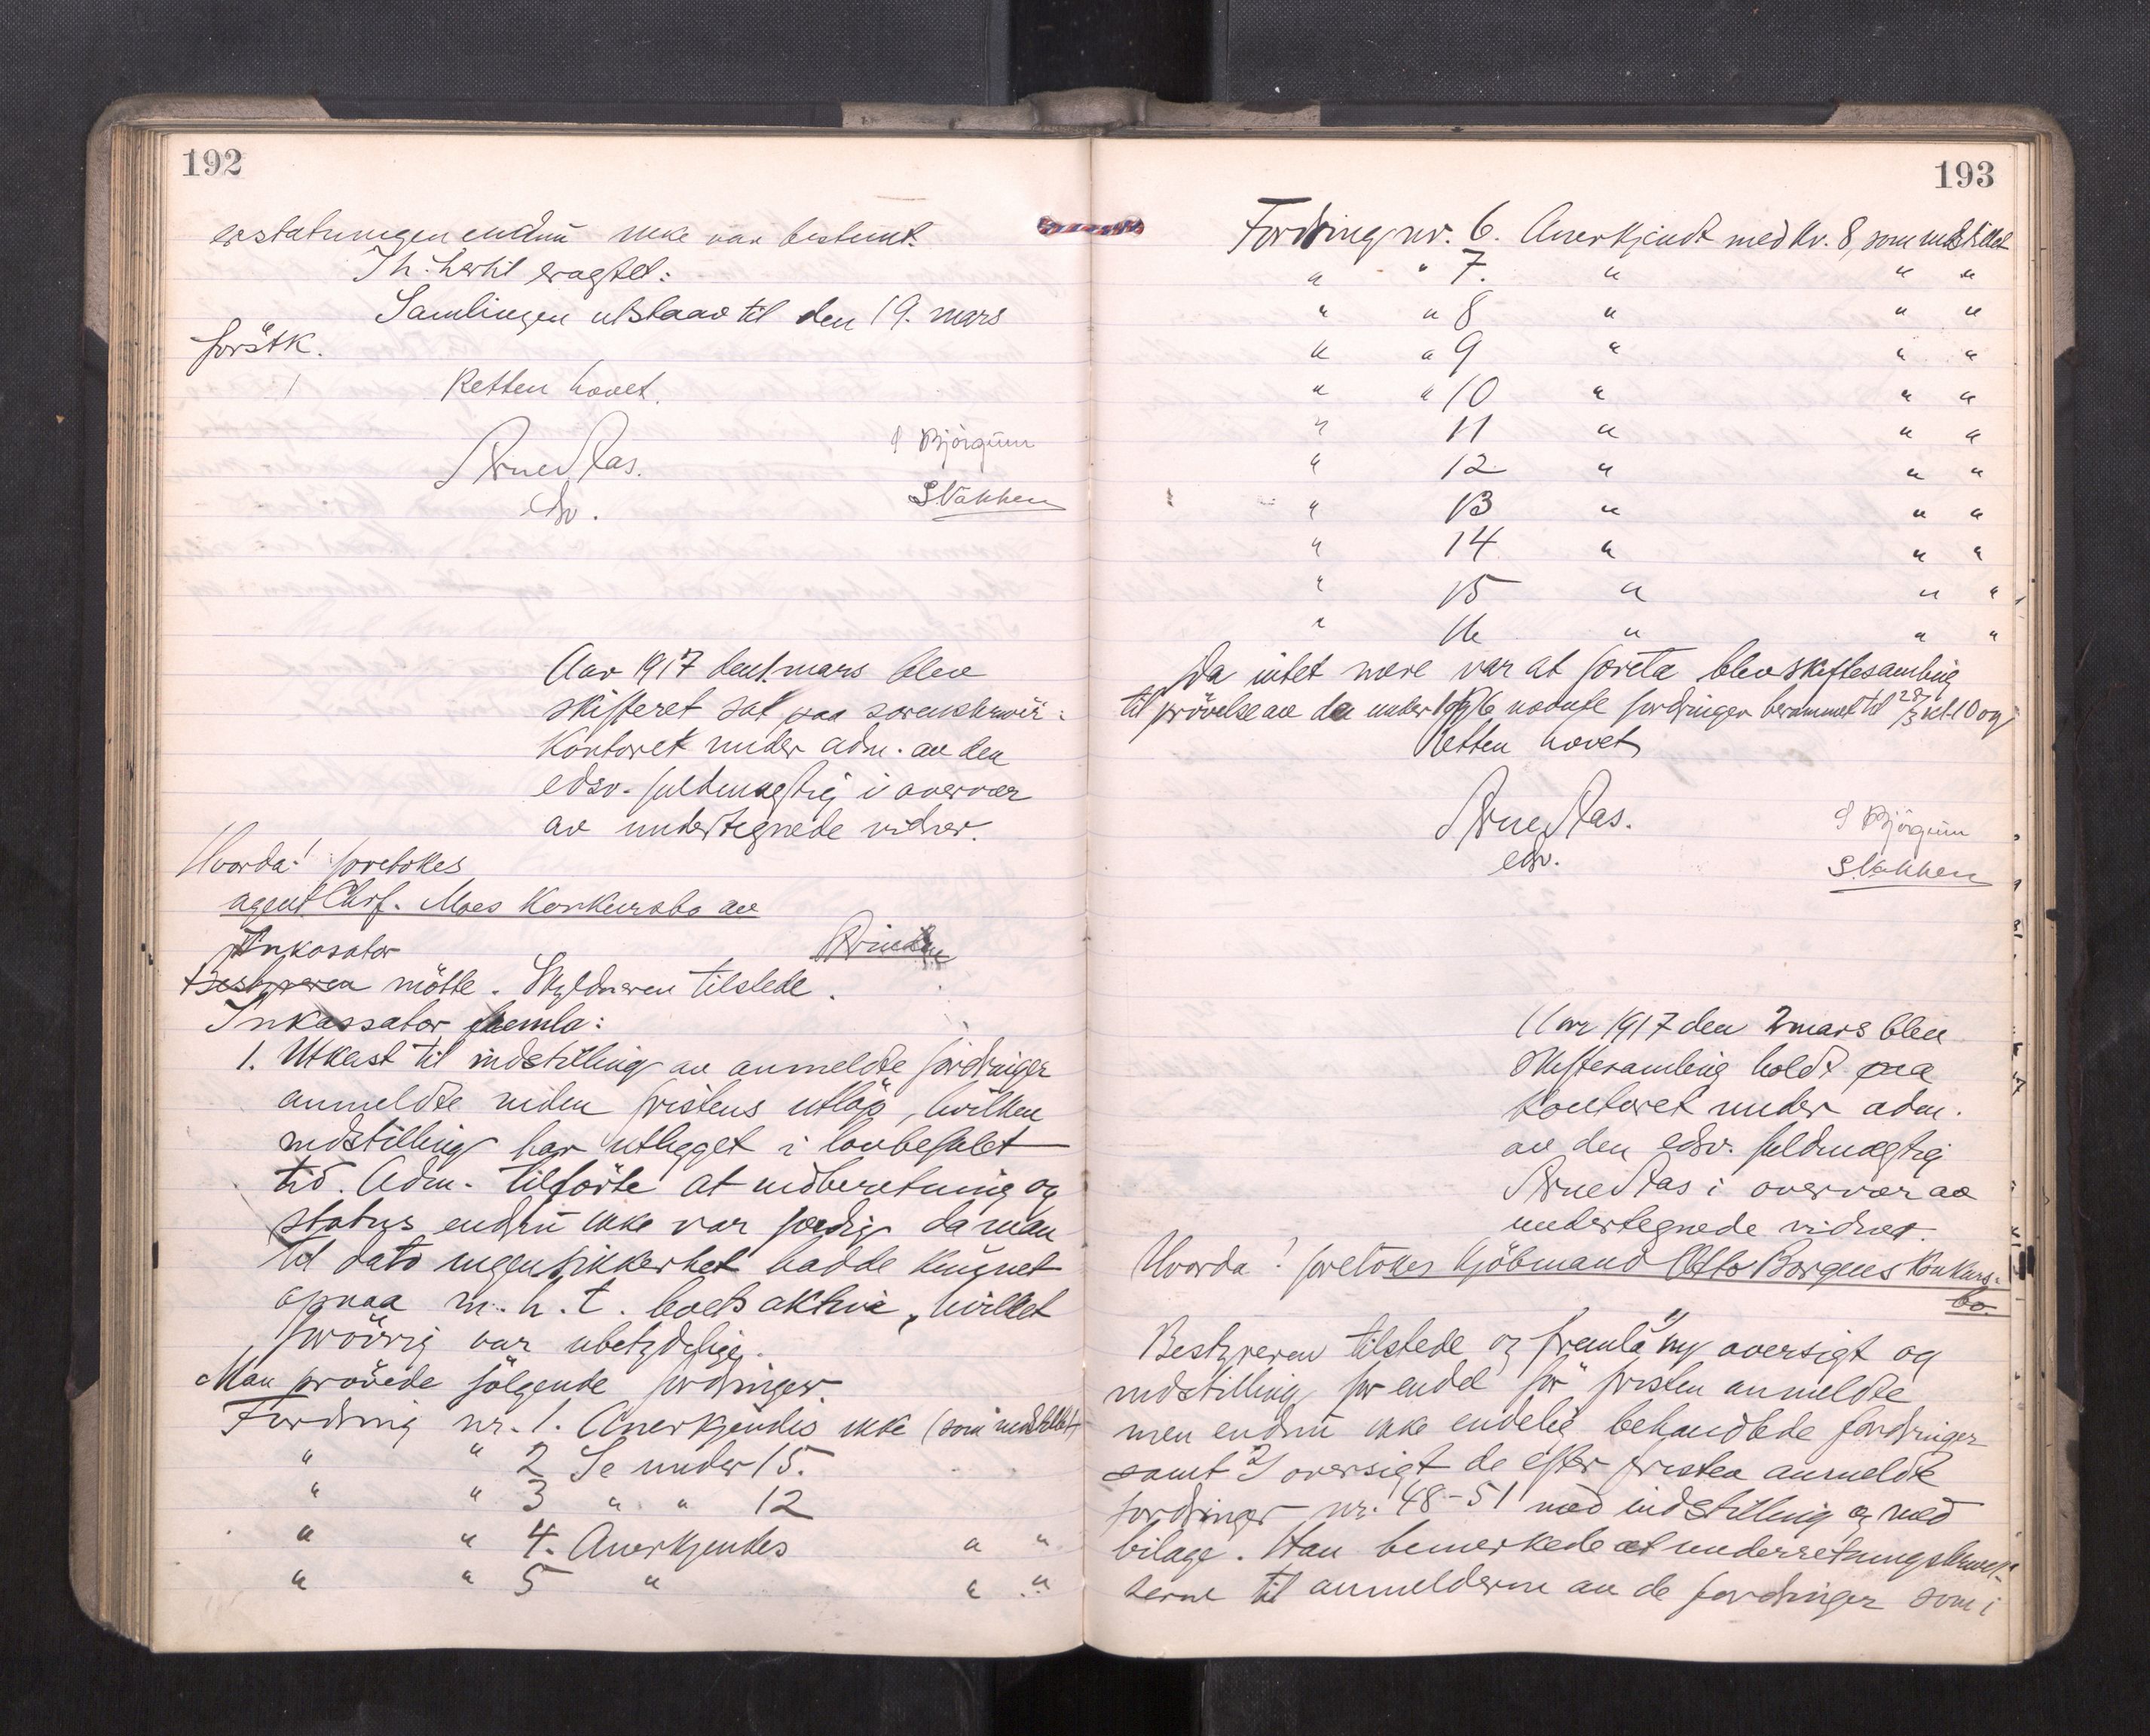 192
erstatningen endnu ikke var bestemt.
Th. hertil eragtet:
Samlingen utstaar til den 19. mars
förstk.
Retten hævet.
Arne Aas.
edsv.
I Björgüm
S Vakken
Aar 1917 den 1. mars blev
skifteret sat paa sorenskriver-
kontoret under adm. av den
edsv. fuldmægtig i overvær
av undertegnede vidner.
Hvorda! foretokes
agent Chrf. Moes konkursbo av
Inkasator
Bestyreren mötte. Skyldneren tilstede.
Inkassator fremla:
1. Utkast til indstilling av anmeldte fordringer
anmeldte inden fristens utlöp, hvilken
indstilling har utligget i lovbefalet
tid. Adm. tilförte at indberetning og
status endnu ikke var færdig da man
til dato ingen sikkerhet hadde kunnet
opnaa m. h. t. boets aktiva, hvilket
forövrig var ubetydelige.
Man prövede fölgende fordringer.
Fordring nr. 1. Anerkjendes ikke (som indstillet)
" " 2 Se under 15.
" " 3 " " 12
" " 4. Anerkjendes " "
" " 5 " " "
193
Fordring nr. 6. Anerkjendt med kr. 8, som indstillet
" " 7. " " "
" " 8 " " "
" " 9 " " "
" " 10 " " "
" 11 " " "
" 12 " " "
" 13 " " "
" 14 " " "
" 15 " " "
" 16 " " "
Da intet mere var at foreta blev skiftesamling
til prövelse av de under 1 og 6 nævnte fordringer berammet til 28/3 kl. 10 og
Retten hævet
Arne Aas.
edsv.
I Björgüm
S. Vakken
Aar 1917 den 2 mars blev
skiftesamling holdt paa
kontoret under adm.
av den edsv. fuldmægtig
Arne Aas i overvær av
undertegnede vidner.
Hvorda! foretokes kjöbmand Otto Borgens konkurs-
bo.
Bestyreren tilstede og fremla 1) ny oversigt og
indstilling for endel för fristen anmeldte
men endnu ikke endelig behandlede fordringer
samt 2) oversigt de efter fristen anmeldte
fordringer nr. 48-51 med indstilling og med
bilage. Han bemerkede at underretningsskrivel-
serne til anmelderne av de fordringer som i